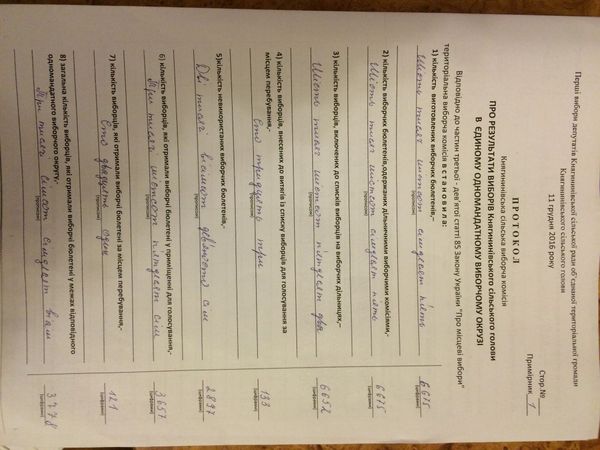 Перші вибори депутатів Княгининівської сільської ради об'єднаної територіальної громади
Княгининівського сільського голови
11 грудня 2016 року
Стор.№
Примірник 1
П Р О Т О К О Л
Княгининівська сільська виборча комісія
ПРО РЕЗУЛЬТАТИ ВИБОРІВ Княгининівського сільського голови
В ЄДИНОМУ ОДНОМАНДАТНОМУ ВИБОРЧОМУ ОКРУЗІ
Відповідно до частин третьої - дев'ятої статті 85 Закону України "Про місцеві вибори"
територіальна виборча комісія в с т а н о в и л а:
1) кількість виготовлених виборчих бюлетенів,-
Шість тисяч шістсот сімдесят п'ять 6675
(прописом) (цифрами)
2) кількість виборчих бюлетенів,одержаних дільничними виборчими комісіями,-
Шість тисяч шістсот сімдесят п'ять 6675
(прописом) (цифрами)
3) кількість виборців, включених до списків виборців на виборчих дільницях,–
Шість тисяч шістсот п'ятдесят два 6652
(прописом) (цифрами)
4) кількість виборців, внесених до витягів із списку виборців для голосування за
місцем перебування,-
Сто тридцять три 133
(прописом) (цифрами)
5)кількість невикористаних виборчих бюлетенів,-
Дві тисячі вісімсот дев'яносто сім 2897
(прописом) (цифрами)
6) кількість виборців, які отримали виборчі бюлетені у приміщенні для голосування,-
Три тисячі шістсот п'ятдесят сім 3657
(прописом) (цифрами)
7) кількість виборців, які отримали виборчі бюлетені за місцем перебування,-
Сто двадцять один 121
(прописом) (цифрами)
8) загальна кількість виборців, які отримали виборчі бюлетені у межах відповідного
одномандатного виборчого округу,-
Три тисячі сімсот сімдесят вісім 3778
(прописом) (цифрами)